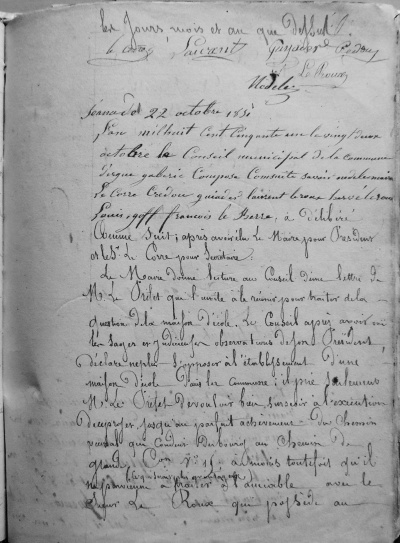 Les Jours, mois et an que Dessus
le Corre Laurent Guyader Credou
Le Roux
Nedelec
Séance du 22 octobre 1851
L'an mil huit cent cinquante un le vingt deux
octobre le Conseil municipal de la commune
d'ergue gaberic Composé Comsuite savoir nedelec maire
le Corre Credou guiader laurent leroux hervé le roux
Louis, goff francois le Berre, à délibéré
Comme Suit; après avoir élu Le Maire pour Président
et le Sr Le Corre pour Secrétaire
Le Maire donne lecture au Conseil d'une lettre de
M. Le Préfet que l'invite à le réunir pour traiter de la
question de la maison d'école. Le Conseil après avoir
les sages et judicieuses observations de son Président,
déclare ne plus S'opposer à l'établissement D'une
maison d'école Dans les Commune; il prie Seulement
M. Le Préfet de vouloir bien surseoir à l'exécution
De ce projet jusqu'au parfait achèvement du Chemin
vicinal qui Conduit Du bourg au Chemin de
grande Con n° 15 à moins toutefois qu'il
ne parvienne à traiter à l'amiable avec le
Sieur Le Roux qui possède au